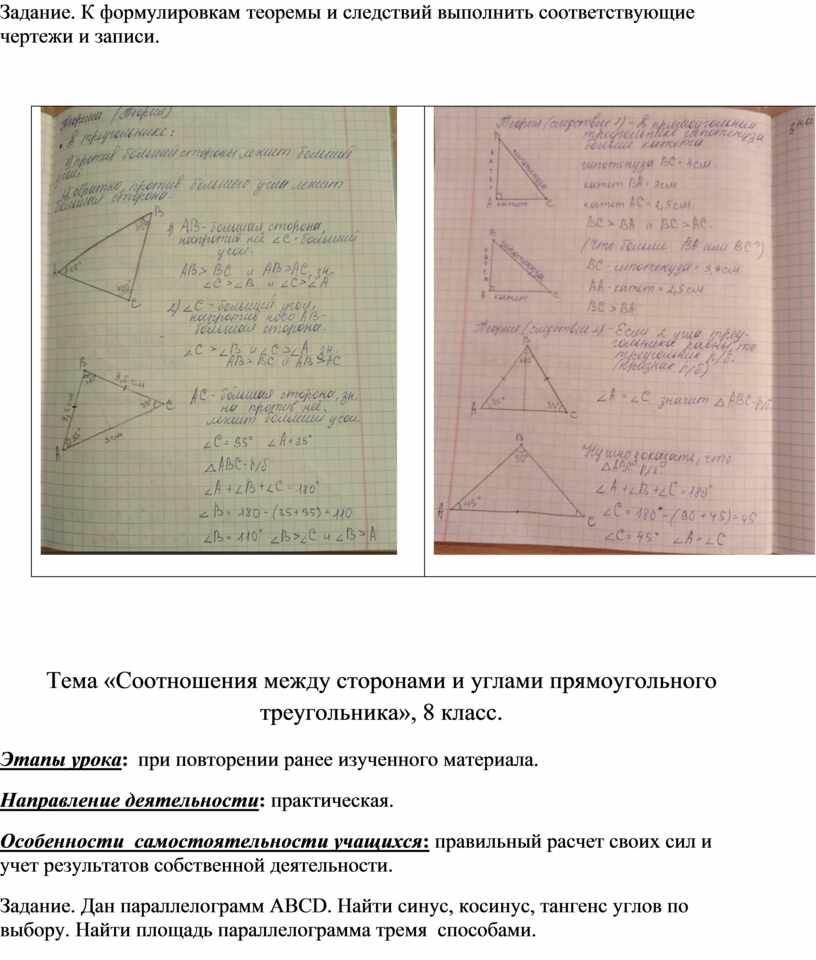 Задание. К формулировкам теоремы и следствий выполнить соответствующие
чертежи и записи.
Теорема (Теория)
• В треугольнике:
1) против большей стороны лежит больший
угол,
2) обратно, против большего угла лежит
большая сторона.
1) АВ - большая сторона,
напротив неё ∠C - больший
угол.
АВ > ВС и АВ > АС, зн.
∠C > ∠B и ∠C > ∠A
2) ∠C - больший угол,
напротив него АВ -
большая сторона.
∠C > ∠B и ∠C > ∠A зн.
АВ > ВС и АВ > АС
B
A
C
B
A
C
АС - большая сторона, зн.
на против неё
лежит больший угол
∠C = 35° ∠A = 35°
△ABC - р/б
∠A + ∠B + ∠C = 180°
∠B = 180 - (35+35) = 110
∠B = 110° ∠B > ∠C и ∠B > A
Теория (следствие 1) - В прямоугольном
треугольнике гипотенуза
больше катета
гипотенуза
A
катет
C
гипотенуза ВС = 4см.
катет АС = 2,5см.
ВС > ВА и ВС > АС.
(Что больше ВА или ВС?)
ВС - гипотенуза = 3,7см
АА - катет = 2,5см
ВС > ВА
B
гипотенуза
A
катет
C
Теория (следствие 2) - Если 2 угла треу-
гольника равны, то
треугольник р/б.
(признак р/б)
B
A
C
∠A = ∠C значит △ABC - р/б
B
A
45°
C
Нужно доказать, что
△ABC р/б
∠A + ∠B + ∠C = 180°
∠C = 180° - (90 + 45) = 45
∠C = 45° ∠A = ∠C
Тема «Соотношения между сторонами и углами прямоугольного
треугольника», 8 класс.
Этапы урока: при повторении ранее изученного материала.
Направление деятельности: практическая.
Особенности самостоятельности учащихся: правильный расчет своих сил и
учет результатов собственной деятельности.
Задание. Дан параллелограмм ABCD. Найти синус, косинус, тангенс углов по
выбору. Найти площадь параллелограмма тремя способами.